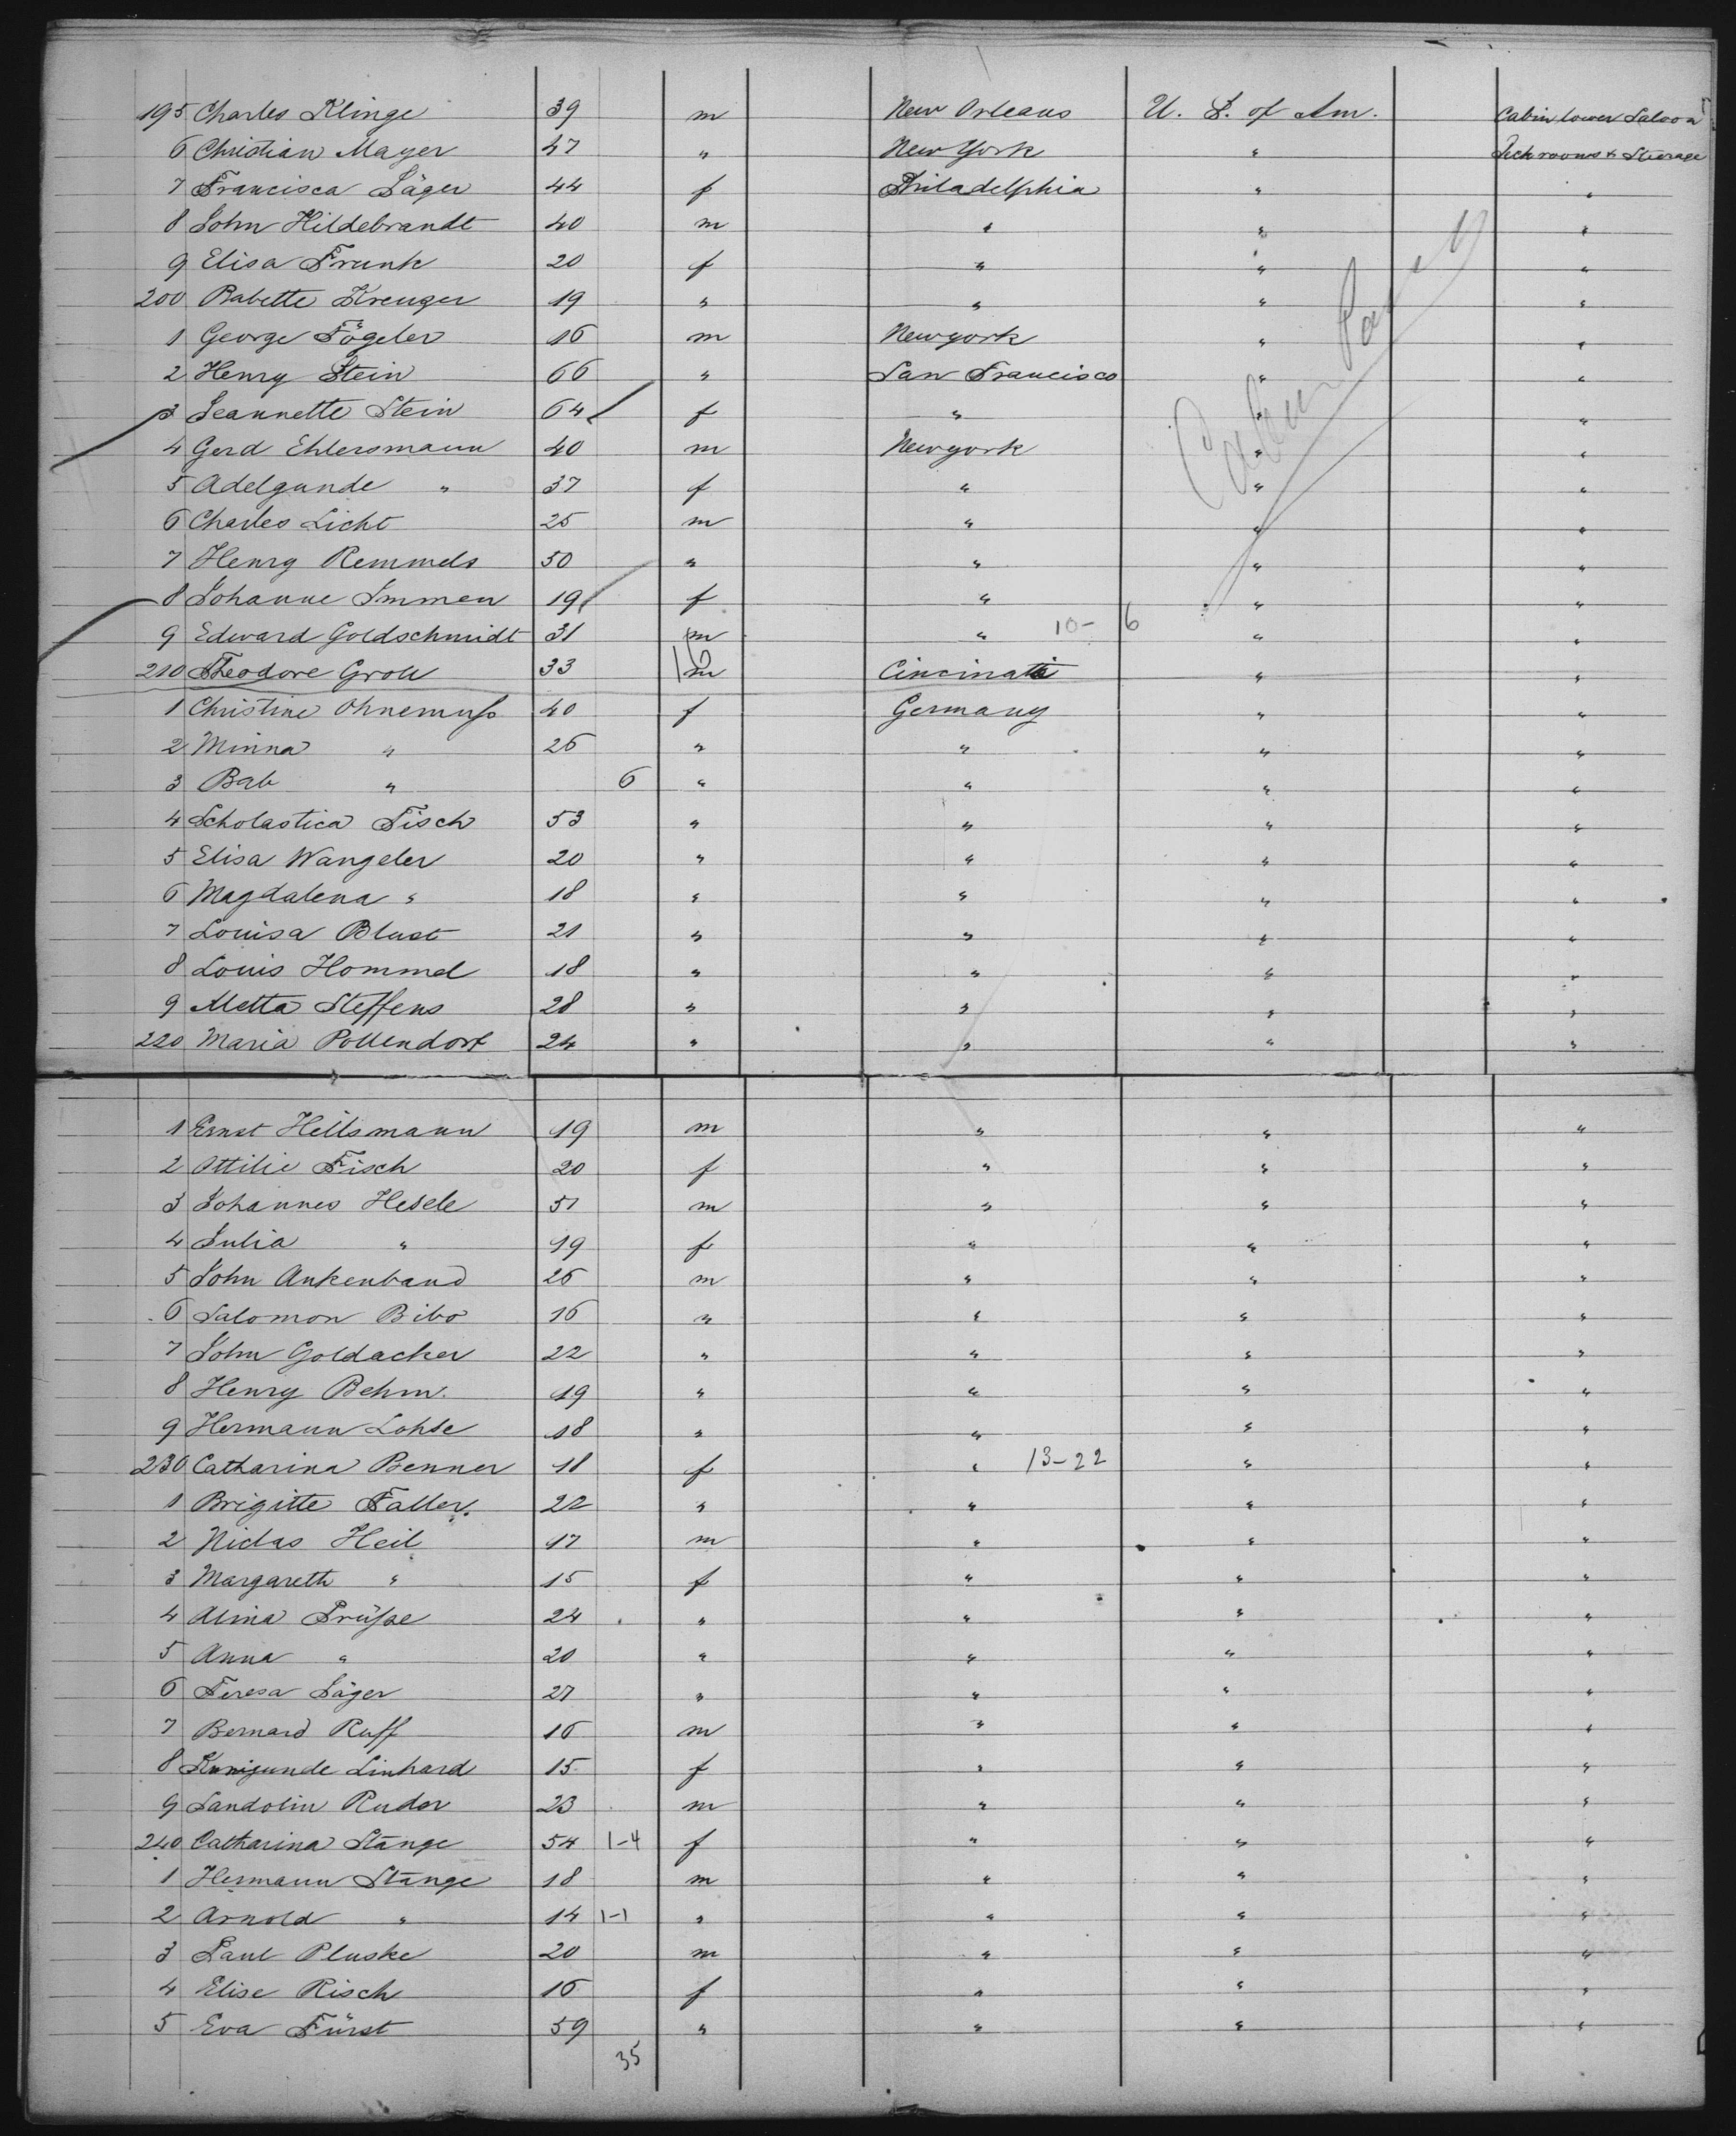 195 Charles Klinge 39 m New Orleans U. S. of Am. Cabin lower Saloon
6 Christian Mayer 47 " New York " Deckrooms & Steerage
7 Francisca Jäger 44 f Philadelphia " "
8 John Hildebrandt 40 m " " "
9 Elisa Frank 20 f " " "
200 Babette Kreuger 19 " " " "
1 George Fögeler 16 m Newyork " "
2 Henry Stein 66 " San Francisco " "
3 Jeannette Stein 64 f " " "
4 Gerd Ehlersmann 40 m Newyork " "
5 Adelgunde " 37 f " " "
6 Charles Licht 25 m " " "
7 Henry Remmels 50 " " " "
8 Johanne Immen 19 f " " "
9 Edward Goldschmidt 31 m " 10- 6 " "
210 Theodore Groll 33 m Cincinati " "
1 Christine Ohnemuß 40 f Germany " "
2 Minna " 26 " " " "
3 Bab " 6 " " " "
4 Scholastica Fisch 53 " " " "
5 Elisa Wangeler 20 " " " "
6 Magdalena " 18 " " " "
7 Louisa Blust 21 " " " "
8 Louis Hommel 18 " " " "
9 Metta Steffens 28 " " " "
220 Maria Pollendorf 24 " " " "
1 Ernst Heilsmann 19 m " " "
2 Ottilie Fisch 20 f " " "
3 Johannes Hesele 51 m " " "
4 Julia " 19 f " " "
5 John Ankenband 26 m " " "
6 Salomon Bibo 16 " " " "
7 John Goldacker 22 " " " "
8 Henry Behm 19 " " " "
9 Hermann Lohse 18 " " " "
230 Catharina Benner 18 f " 13-22 " "
1 Brigitte Faller 22 " " " "
2 Niclas Heil 17 m " " "
3 Margareth " 15 f " " "
4 Alina Prüße 24 " " " "
5 Anna " 20 " " " "
6 Teresa Jäger 27 " " " "
7 Bernard Ruff 16 m " " "
8 Kunigunde Linhard 15 f " " "
9 Landolin Ruder 23 m " " "
240 Catharina Stange 54 1-4 f " " "
1 Hermann Stange 18 m " " "
2 Arnold " 14 1-1 " " " "
3 Paul Pluske 20 m " " "
4 Elise Risch 16 f " " "
5 Eva Fürst 59 " " " "
35